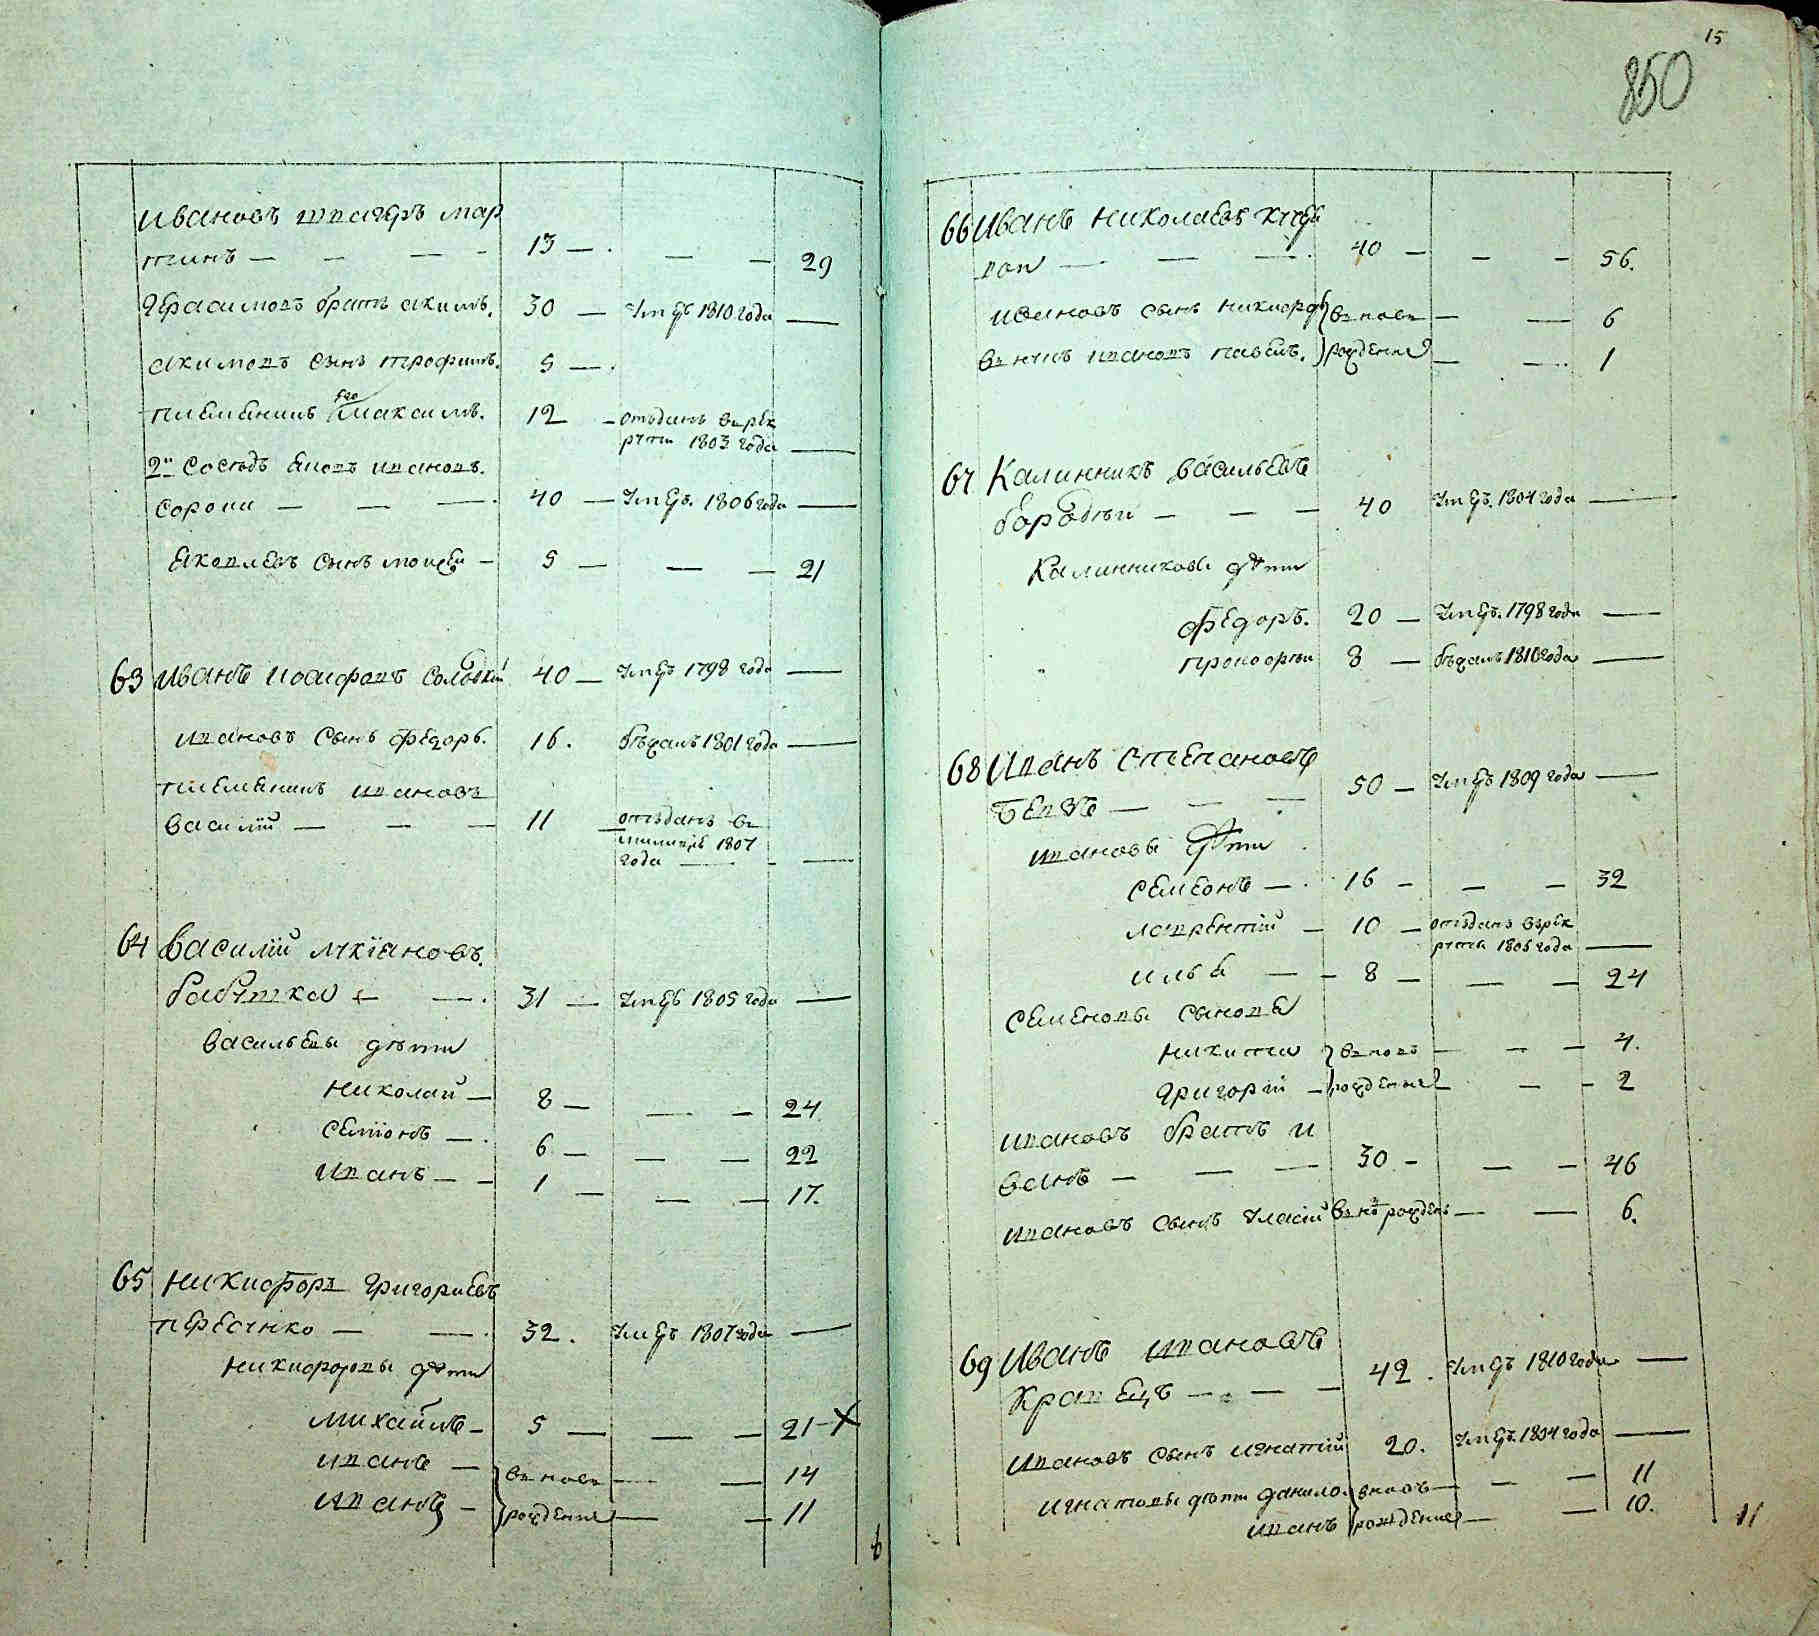 Ивановъ шпагеръ мар
тинъ — — — — 13 — . — — 29
Герасимовъ братъ акимъ. 30 — умеръ 1810 года —
акимовъ сынъ трофимъ. 5 — .
племенникъ его максимъ. 12 — отъданъ врек
руты 1803 года —
2й соседъ яковъ ивановъ.
сорока — — — . 40 — умеръ. 1806 года —
яковлевъ сынъ моисей — 5 — — — 21
63 Иванъ иосифовъ 40 — умеръ 1798 года —
ивановъ сынъ федоръ. 16. бежалъ 1801 года —
племенникъ ивановъ
василий — — — 11 — отъданъ въ
милицiю 1807
года — - —
64 Василий лукiановъ.
бабушка — — . 31 — умеръ 1805 года —
васильевы дети
николай — 8 — — — 24
семiонъ — . 6 — — — 22
иванъ — - 1 — — — 17.
65 Никифоръ григориевъ
пересунко — — . 32. умеръ 1807 года —
никифоровы дети
михайлъ — 5 — — — 21-х
иванъ — вновь — — 14
иванъ — рожденне — — 11
15
850
66 Иванъ николаевъ
— — . 40 — — — 56.
ивановъ сынъ никифоръ вновь — — 6
внукъ ивановъ павелъ. рожденне — — . 1
67 Калинникъ васильевъ
— — — 40 умеръ. 1804 года —
Калинниковы дети
федоръ. 20 — умеръ. 1798 года —
прокофей 8 — бежалъ 1810 года —
68 Иванъ степановъ
— — — 50 — умеръ 1809 года —
ивановы дети
семенъ — . 16 — — — 32
лаврентий — 10 — отъданъ врек
руты 1805 года —
илья — - 8 — — — 24
семеновы сыновья
никита вновь — - — 4.
григорий — рожденне — — - 2
ивановъ братъ и
ванъ — — — 30 — — — 46
ивановъ сынъ власий вно рожден — — 6.
69 Иванъ ивановъ
кравецъ — - — — 42. умеръ 1810 года —
ивановъ сынъ игнатий 20. умеръ. 1804 года —
игнатовы дети данило. вновь — — — 11
иванъ рожденне — — 10.
11